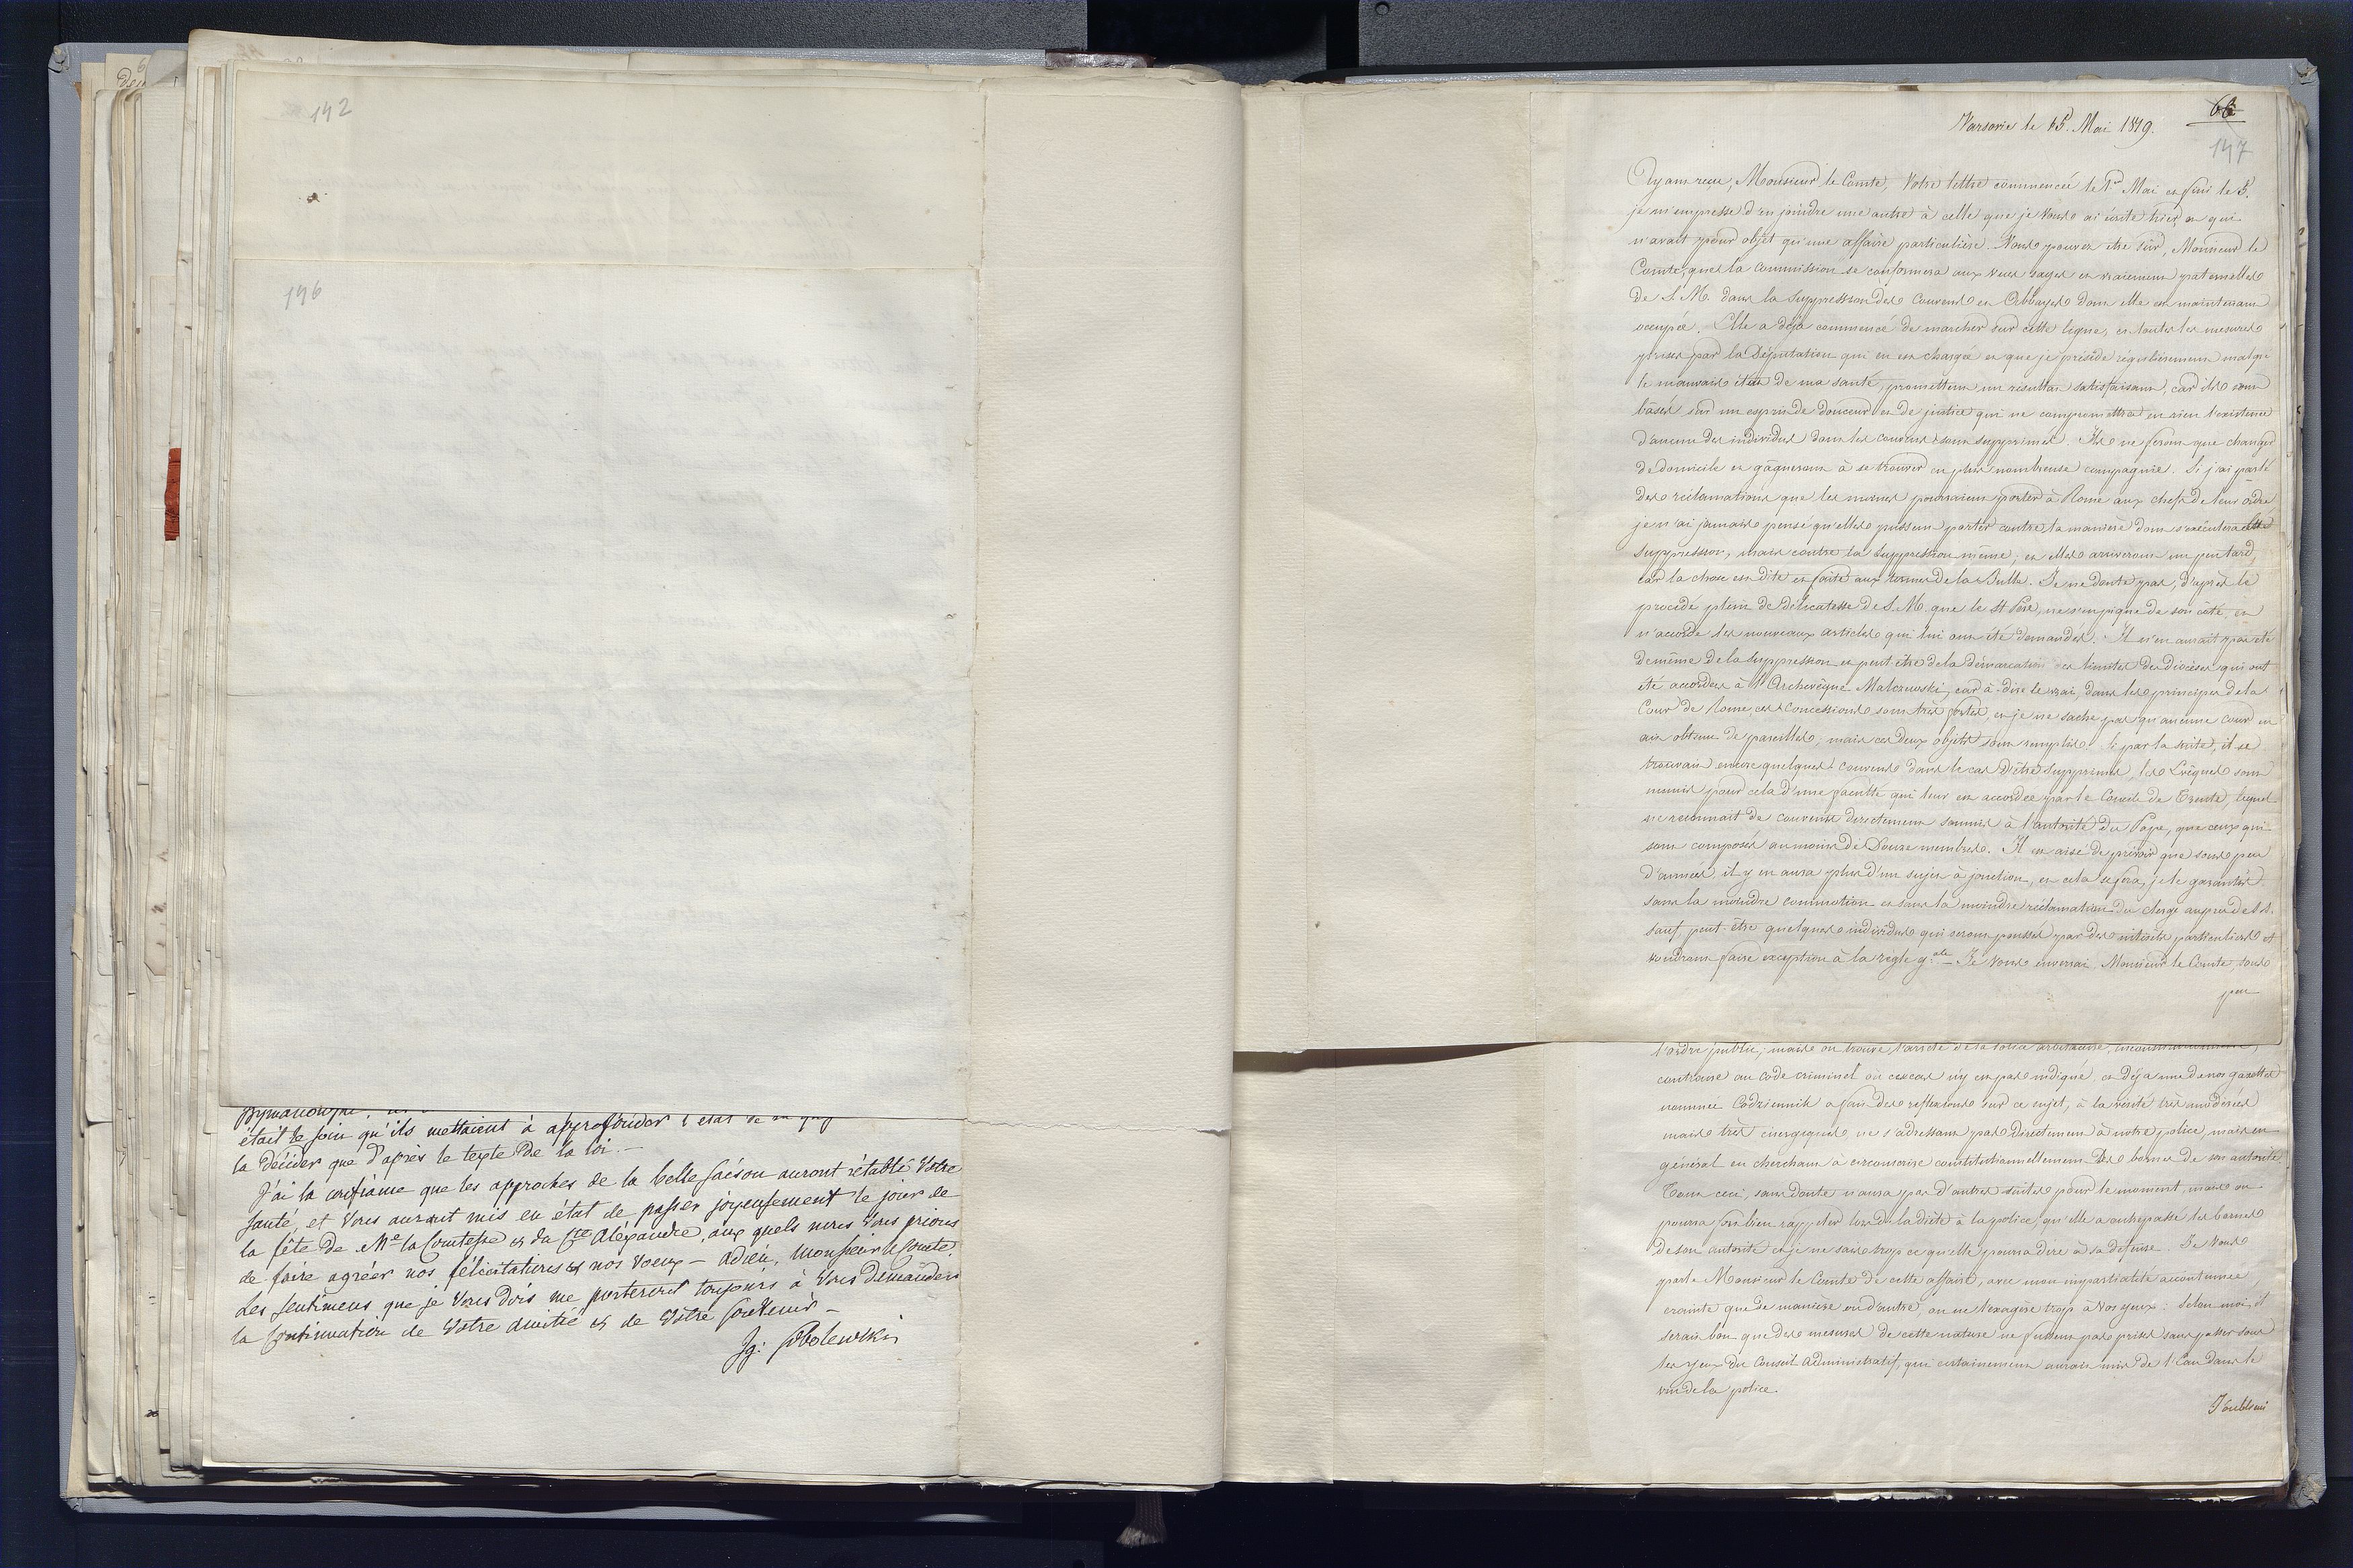 142
146
était le soin qu'ils mettaient à approfondir l'état de la
la décider que d'après le texte de la loi. —
J'ai la confiance que les approches de la belle saison auront rétabli Votre
santé, et Vous auront mis en état de passer joyeusement le jour de
la fête de Me la Comtesse et du Cte Alexandre, aux quels nous Vous prions
de faire agréer nos félicitations et nos voeux — adieu, Monsieur le Comte,
Les sentimens que je Vous dois me porteront toujours à Vous demander
la continuation de Votre amitié et de Votre souvenir —
Ig: Sobolewski
66
147
Varsovie le 15. Mai 1819.
Ayant reçu, Monsieur le Comte, Votre lettre commencée le 1er Mai et fini le 5.
je m'empresse d'en joindre une autre à celle que je Vous ai écrite hier et qui
n'avait pour objet qu'une affaire particulière. Vous pouvez être sûr, Monsieur le
Comte, que la Commission se conformera aux vues sages et vraiement paternelles
de S. M. dans la Suppression des Couvens et Abbayes dont elle est maintenant
occupée. Elle a déjà commencé de marcher sur cette ligne, et toutes les mesures
prises par la Députation qui en est chargée et que je préside régulièrement malgré
le mauvais état de ma santé, promettent un résultat satisfaisant, car ils sont
basés sur un esprit de douceur et de justice qui ne compromettra en rien l'existence
d'aucun des individus dont les couvens sont supprimés. Ils ne feront que changer
de domicile et gâgneront à se trouver en plus nombreuse compagnie. Si j'ai parlé
des réclamations que les moines pourraient porter à Rome aux chefs de leur ordre
je n'ai jamais pensé qu'elles pussent porter contre la manière dont s'exécutera cette
suppression, mais contre la Suppression même, et elles arriveront un peu tard,
car la chose est dite et faite aux termes de la Bulle. Je ne doute pas, d'après le
procédé plein de délicatesse de S. M. que le St Père, ne s'en pique de son côté, et
n'accorde les nouveaux articles qui lui ont été demandés. Il n'en aurait pas été
de même de la Suppression et peut être de la démarcation des limites des diocèses qui ont
été accordés à l'Archevêque Malczewski, car à dire le vrai, dans les principes de la
Cour de Rome, ces Concessions sont très fortes, et je ne sache pas qu'aucune cour en
ait obtenu de pareilles, mais ces deux objets sont remplis. Si par la suite, il se
trouvait encore quelques couvens dans le cas d'être supprimés, les Evêques sont
munis pour cela d'une faculté qui leur est accordée par le Concile de Trente, lequel
ne reconnait de couvens directement soumis à l'autorité du Pape, que ceux qui
sont composés au moins de Douze membres. Il est aisé de prévoir que sous peu
d'années, il y en aura plus d'un sujet à jonction, et cela se fera, je le garantis
sans la moindre commotion et sans la moindre réclamation du clergé auprès du St. S.
sauf peut-être quelques individus qui seront poussés par des intérêts particuliers et
voudront faire exception à la règle gale — Je Vous enverrai Monsieur le Comte, sous
peu
l'ordre public; mais on trouve l'arrêté de la Police arbitraire, inconstitutionnel,
contraire au code criminel où ce cas n'y est pas indiqué, et déja une de nos gazettes
nommée Codziennik a fait des reflexions sur ce sujet, à la vérité très modérées
mais très énergiques ne s'adressant pas directement à notre police, mais en
général en cherchant à circonscrire constitutionnellement les bornes de son autorité
Tout ceci, sans doute n'aura pas d'autres suites pour le moment, mais on
pourra fort bien rappeler lors de la diète à la police, qu'elle a outrepassé les bornes
de son autorité et je ne sais trop ce qu'elle pourra dire à sa défense. Je Vous
parle Monsieur le Comte de cette affaire, avec mon impartialité accoutumée
crainte que de manière ou d'autre, on ne l'exagère trop à Vos yeux: Selon moi, il
serait bon que des mesures de cette nature ne fussent pas prises sans passer sous
les yeux du Conseil Administratif, qui certainement aurait mis de l'Eau dans le
vin de la police.
J'oubliais